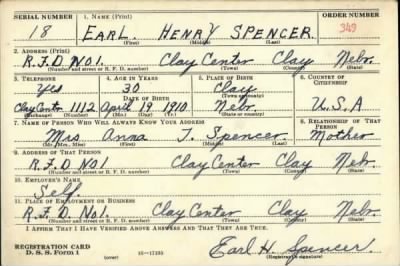 SERIAL NUMBER 1. NAME (Print) ORDER NUMBER
18 EARL. HENRY SPENCER. 349
(First) (Middle) (Last)
2. ADDRESS (Print)
R.F.D No1. Clay Center Clay Nebr.
(Number and street or R. F. D. number) (Town) (County) (State)
3. TELEPHONE 4. AGE IN YEARS 5. PLACE OF BIRTH 6. COUNTRY OF CITIZENSHIP
Yes 30 Clay
DATE OF BIRTH
Clay Centr. 1112 April 19 1910 Nebr. U.S.A
(Exchange) (Number) (Mo.) (Day) (Yr.) (State or country)
7. NAME OF PERSON WHO WILL ALWAYS KNOW YOUR ADDRESS 8. RELATIONSHIP OF THAT PERSON
Mrs. Anna T. Spencer Mother
(Mr., Mrs., Miss) (First) (Middle) (Last)
9. ADDRESS OF THAT PERSON
R.F.D No1 Clay Center Clay Nebr.
(Number and street or R. F. D. number) (Town) (County) (State)
10. EMPLOYER'S NAME
Self.
11. PLACE OF EMPLOYMENT OR BUSINESS
R.F.D. No1. Clay Center Clay Nebr.
(Number and street or R. F. D. number) (Town) (County) (State)
I AFFIRM THAT I HAVE VERIFIED ABOVE ANSWERS AND THAT THEY ARE TRUE.
REGISTRATION CARD
D. S. S. Form 1 (over) 16—17105 Earl H. Spencer.
(Registrant's signature)